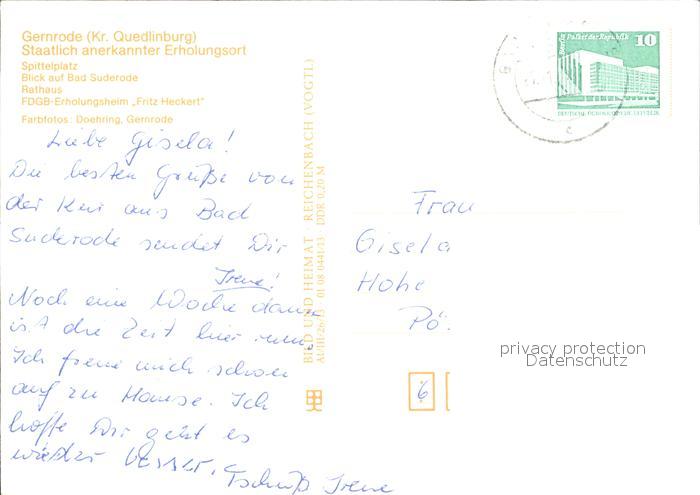 Gernrode (Kr. Quedlinburg)
Staatlich anerkannter Erholungsort
Spittelplatz
Blick auf Bad Suderode
Rathaus
FDGB-Erholungsheim „Fritz Heckert"
Farbfotos: Doehring, Gernrode
Liebe Gisela!
Die besten Grüße von
der Kur aus Bad
Suderode sendet Dir
Irene!
Noch eine Woche dann
ist die Zeit hier rum.
Ich freue mich schon
auf zu Hause. Ich
hoffe Dir geht es
wieder besser.
Tschüß Irene
BILD UND HEIMAT · REICHENBACH (VOGTL)
01 08 0441/13 DDR 0,20 M
Berlin Palast der Republik
10
Frau
Gisela
Hohe
Pö.
6
privacy protection
Datenschutz